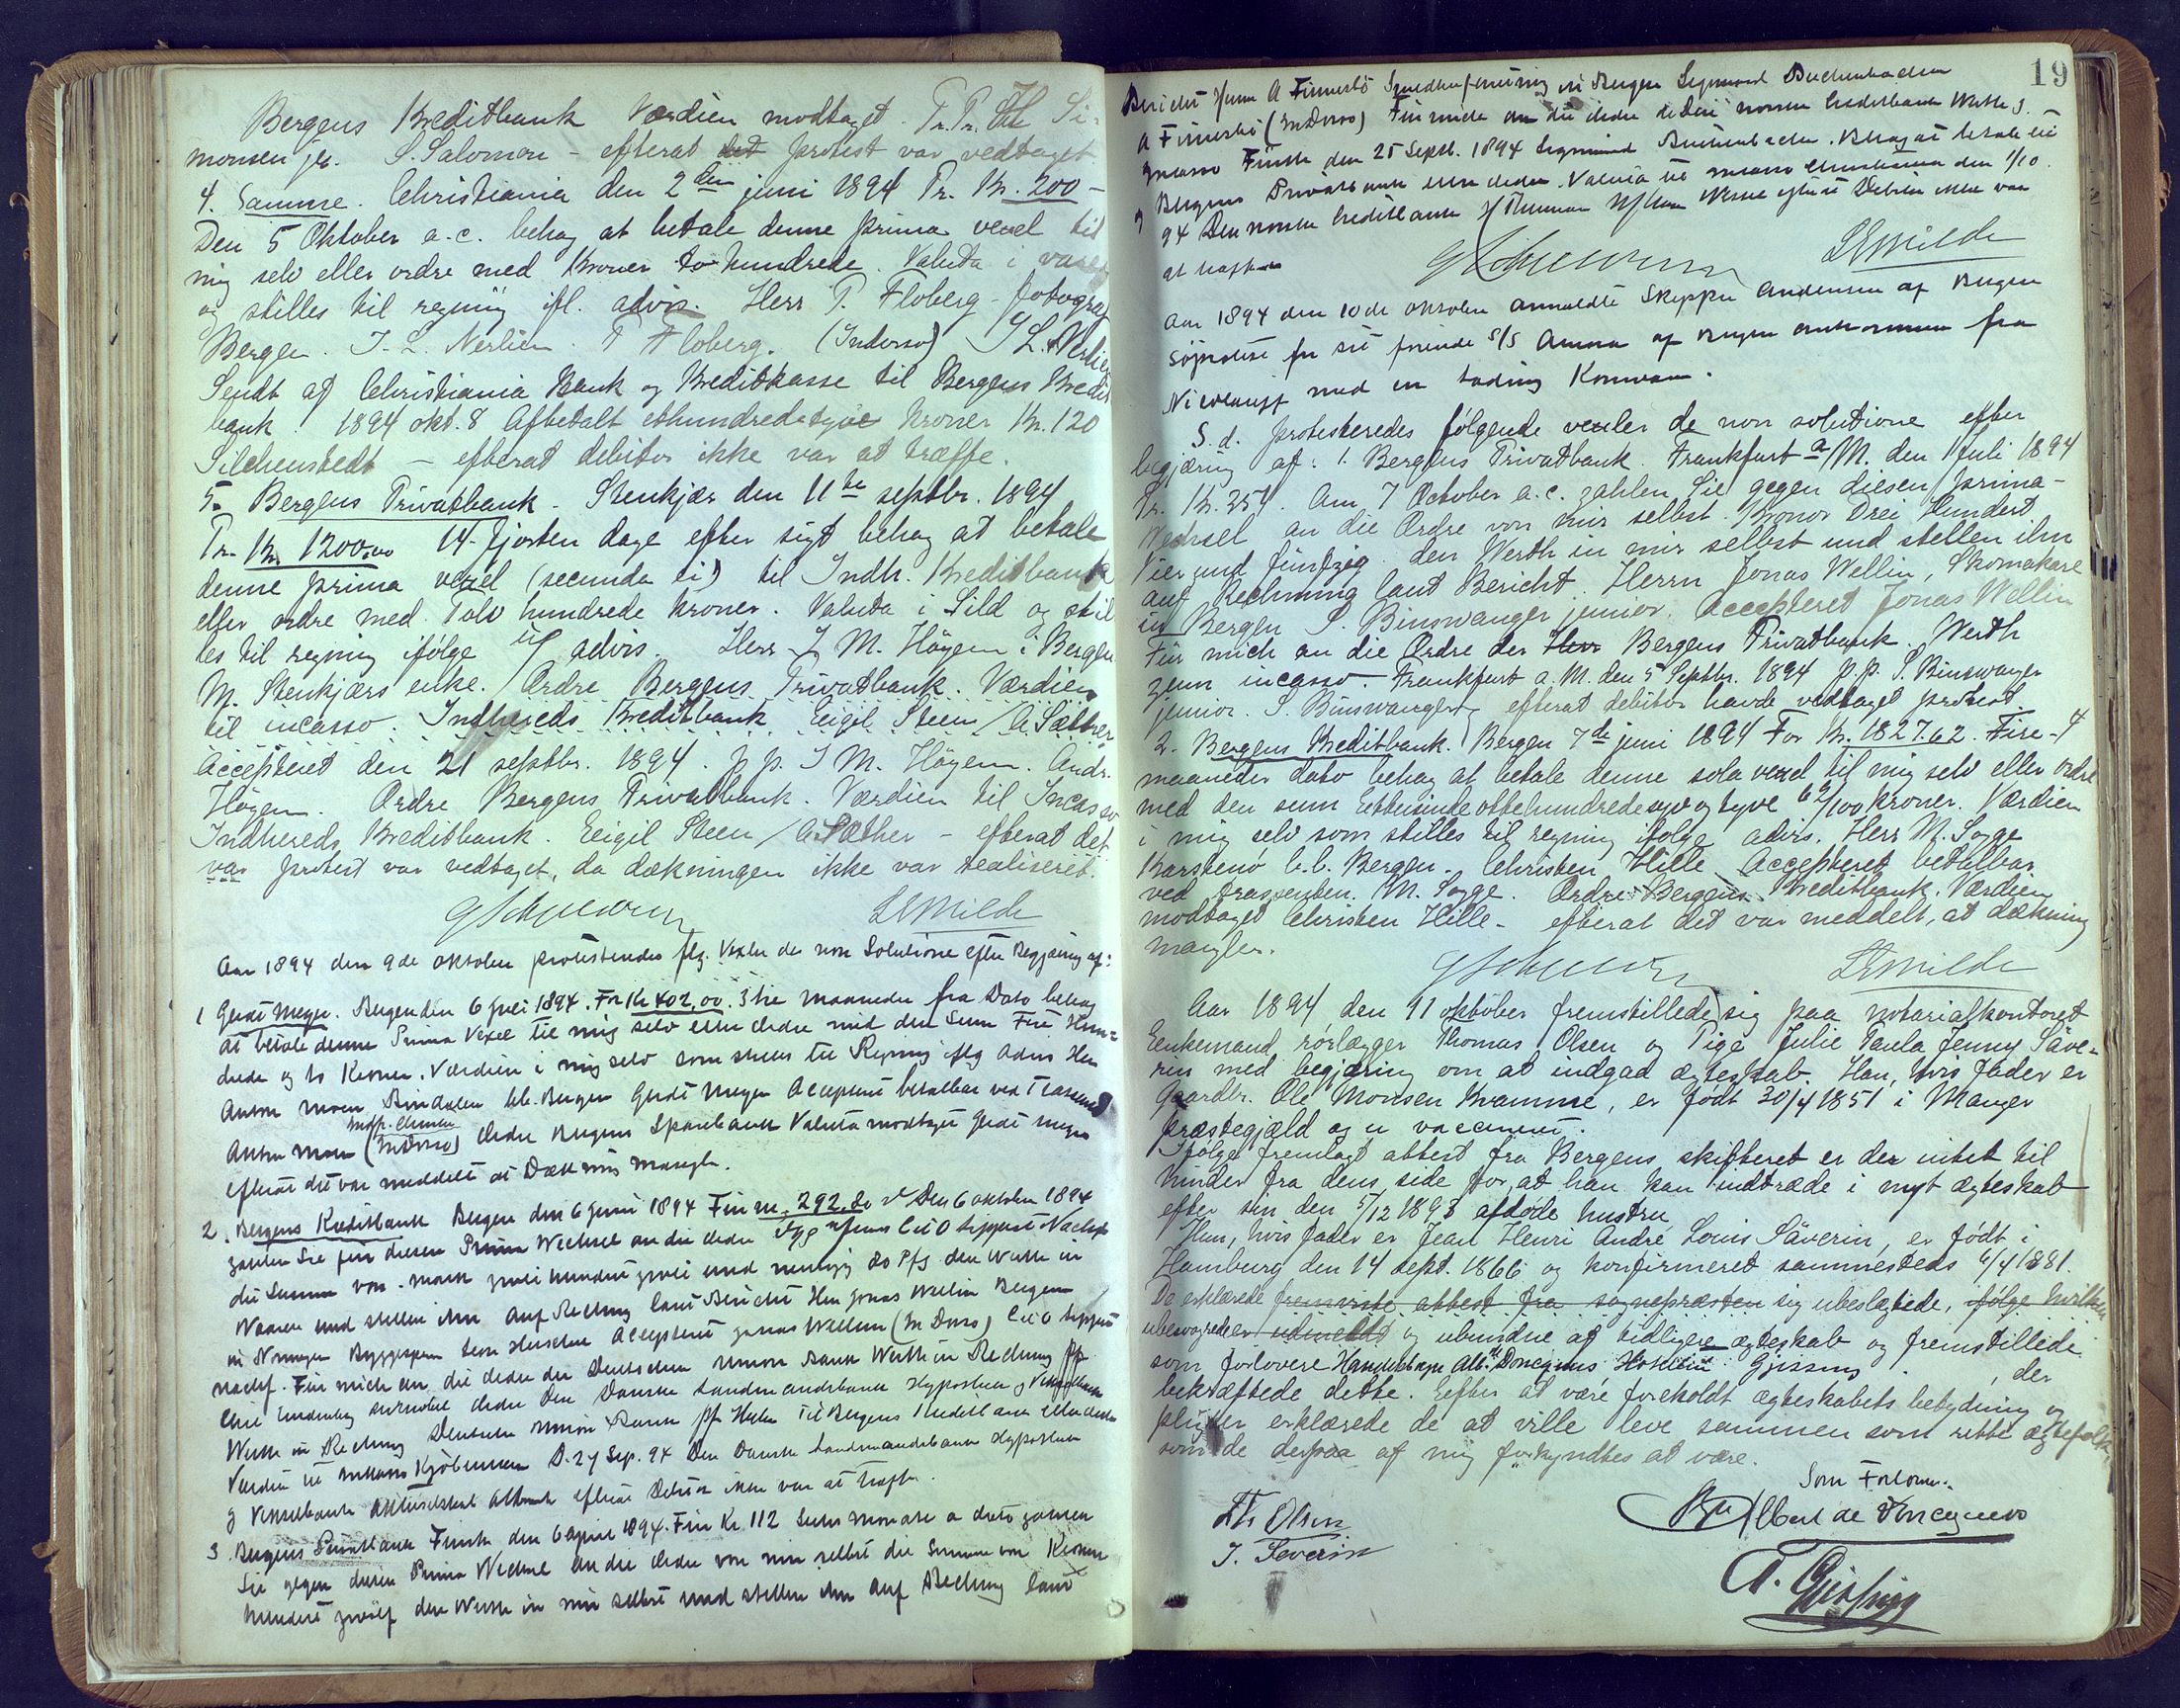 Bergens Kreditbank Værdien modtaget. Pr. Pr. Si-
monsen jr. S. Salomon - efterat det protest var vedtaget.
4. Samme. Christiania den 2den juni 1894 Pr. Kr. 200 -
Den 5 Oktober a.c. behag at betale denne prima vexel til
mig selv eller ordre med Kroner to hundrede. Valuta i varer
og stilles til regning ifl. advis. Herr P. Floberg - fotograf
Bergen. J. L. Nerlien P Floberg. (Indorso) J L. Nerlien
Sendt af Christiania Bank og Kreditkasse til Bergens Kredit
bank. 1894 okt. 8 Afbetalt ethundredetyve kroner Kr. 120
Silchenstedt - efterat debitor ikke var at træffe.
5. Bergens Privatbank. Stenkjær den 11te septbr. 1894
Pr. Kr. 1200.00 14 fjorten dage efter sigt behag at betale
denne prima vexel (secunda ei) til Indh. Kreditbank
eller ordre med Tolv hundrede kroner. Valuta i Sild og stil
les til regning ifølge advis. Herr J. M. Høyem i Bergen
M. Stenkjærs enke. Ordre Bergens Privatbank. Værdien
til incasso. Indhereds Kreditbank Eeigil Steen / A. Sæther
Accepteret den 21 septbr. 1894. p. p. J M. Høyem. Andr.
Høyem. Ordre Bergens Privatbank. Værdien til Incasso
Indhereds Kreditbank. Eeigil Steen / A. Sæther - efterat det
var protest var vedtaget, da dækningen ikke var realiseret.
LEMilde
Aar 1894 den 9de oktober protesteredes flg. Vexler de non Solutione efter Begjæring af:
1 Gerdt Meyer. Bergen den 6 Juli 1894. For Kr 402,00. 3 tre maaneder fra Dato behag
at betale denne Prima Vexel til mig selv eller Ordre med den Sum Fire Hun-
drede og to Kroner. Værdien i mig selv som stilles til Regning iflg Advis Herr
Anton Moen Bergen Gerdt Meyer Accepteret betalbar ved Trassenten
Anton Moen (In Dorso) Ordre Bergens Sparebank Valuta modtaget Gerdt Meyer
efterat det var meddelt at Dækning mangler.
2. Bergens Kreditbank Bergen den 6 Juni 1894 Für M. 292,80 Den 6 oktober 1894
zahlen Sie für diesen Prima Wechsel an die Ordre
die Summe von Mark zwei hundert zwei und neunzig 80 Pfg den Werth in
Waaren und stellen ihn auf Rechnung laut Bericht Herr Jonas Wellin Bergen
in Norwegen Accepteret Jonas Wellin (In Dorso)
nachf. Für mich an die Ordre der Deutschen Union Bank Werth in Rechnung pp
Ordre Den Danske Landmandsbank Hypothek og Vexelbank
Werth in Rechnung Deutsche Union Bank Til Bergens Kreditbank eller Ordre
Værdi til Inkasso Kjøbenhavn D. 24 Sep. 94 Den Danske Landmandsbank Hypothek
og Vexelbank Aktieselskab efterat Debitor ikke var at træffe.
3. Bergens Privatbank Fürth den 6 April 1894. Für Kr. 112 Sechs Monate a dato zahlen
Sie gegen diesen Prima Wechsel an die Ordre von mir selbst die Summe von Kronen
hundert zwölf den Werth in mir selbst und stellen ihn auf Rechnung laut
19
Bericht Herrn A in Bergen Sigmund
A (In Dorso) Für mich an die Ordre Den norske Creditbank Werth z.
Incasso Fürth den 25 Septb. 1894 Sigmund Behag at betale til
Bergens Privatbank eller Ordre. Valuta til incasso Christiania den 1/10
94 Den norske Creditbank efterat Debitor ikke var
at træffe
LEMilde
Aar 1894 den 10de oktober anmeldte Skipper Andersen af Bergen
Søprotest for sit førende S/S Anna af Bergen ankommen fra
Nicolaieff med en Ladning Kornvarer.
S. d. protesteredes følgende vexler de non solutione efter
begjæring af: 1. Bergens Privatbank. Frankfurt a/M. den 1 Juli 1894
Pr. Kr. 354. Am 7 October a.c. zahlen Sie gegen diesen prima-
Wechsel an die Ordre von mir selbst. Kronor Drei Hundert
Vier und fünfzig den Werth in mir selbst und stellen ihn
auf Rechnung laut Bericht. Herrn Jonas Wellin, Skomakare
in Bergen S. Binswanger junior. Accepteret Jonas Wellin
Für mich an die Ordre der Herr Bergens Privatbank. Werth
zum incasso. Frankfurt a. M. den 5 Septbr. 1894 p. p. S. Binswanger
junior. S. Binswanger efterat debitor havde vedtaget protest.
2. Bergens Kreditbank. Bergen 7de juni 1894 For Kr. 1827.62. Fire - 4
maaneder dato behag at betale denne sola vexel til mig selv eller ordre
med den sum Eettusinde ottehundrede syv og tyve 62/100 kroner. Værdien
i mig selv som stilles til regning ifølge advis. Herr M. Sogge
Bergen. Christen Hille Accepteret betalbar
ved trassenten. M. Sogge. Ordre Bergens Kreditbank. Værdien
modtaget Christen Hille - efterat det var meddelt, at dækning
mangler.
LEMilde
Aar 1894 den 11 oktober fremstillede sig paa notarialkontoret
Enkemand, rørlægger Thomas Olsen og Pige Julie Paula Jenny Säve-
rin med begjæring om at indgaa ægteskab. Han, hvis fader er
Gaardbr. Ole Monsen Kramme, er født 30/4 1851 i Manger
præstegjæld og er vaccineret.
Ifølge fremlagt attest fra Bergens skifteret er der intet til
hinder fra dens side for, at han kan indtræde i nyt ægteskab
efter sin den 5/12 1893 afdøde hustru
Hun, hvis fader er Jean Henri André Louis Säverin, er født i
Hamburg den 14 sept. 1866 og konfirmeret sammesteds 6/4 1881.
De erklærede fremviste attest fra sognepræsten sig ubeslægtede, ifølge hvilken
ubesvogrede er udmeldt og ubundne af tidligere ægteskab og fremstillede
som forlovere Alb. Gjessing, der
bekræftede dette. Eefter at være foreholdt ægteskabets betydning og
pligter erklærede de at ville leve sammen som rette ægtefolk
som de derpaa af mig forkyndtes at være.
Som Forlovere:
Th Olsen
J. Severin
Albert de
T. Gjessing